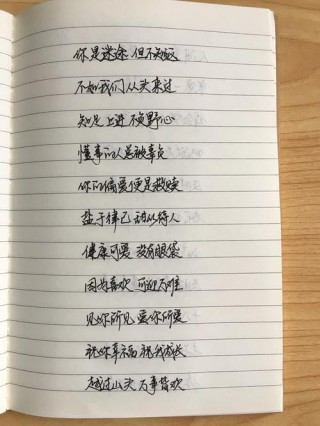 你是迷途 但不知返
不如我们从头来过
知足上进 不负野心
懂事的人总被辜负
你的偏爱便是救赎
益于律己 动以待人
健康可爱 没有眼袋
因为喜欢 可迎万难
见你所见 爱你所爱
祝你幸福 祝我成长
越过山头 万事皆欢